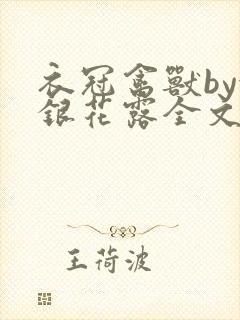 衣冠禽獸by
銀花露全文
王荷波